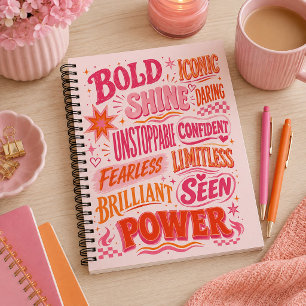 BOLD ICONIC
SHINE DARING
UNSTOPPABLE CONFIDENT
FEARLESS LIMITLESS
BRILLIANT SEEN
POWER